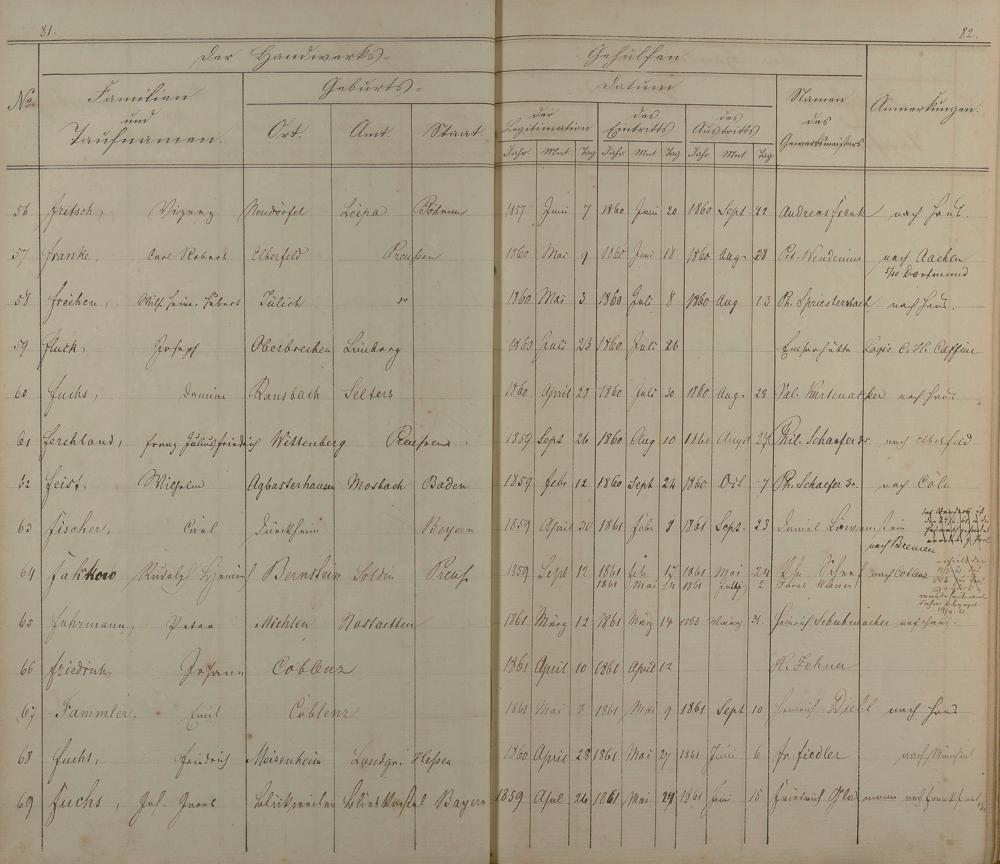 81.
82.
Der Handwerks-
Gehülfen.
No
Familien
und
Taufnamen.
Geburts-
Ort. Amt. Staat.
Datum
der Legitimation des Eintritts des Austritts
Jahr Mnt. Tag Jahr Mnt Tag Jahr Mnt Tag
Namen
des
Gewerbsmeisters
Anmerkungen.
56 Fritsch, Neudörfel Leipa Böhmen 1857 Juni 7 1860 Juni 20 1860 Sept. 22 Andreas Frank nach Haus.
57 Franke, Carl Robert Elberfeld Preußen 1860 Mai 9 1860 Juni 18 1860 Aug. 28 Pet. nach Aachen
5/10 Dortmund
58 Freihen, Wilh. Heinr. Hubert Jülich " 1860 Mai 3 1860 Juli 8 1860 Aug 13 Ph. Spriestersbach nach Haus.
59 Fluck, Joseph Oberbrechen Limburg 1860 Juli 23 1860 Juli 26 Emserhütte Logis C. H.
60 Fuchs, Damian Ransbach Selters 1860 April 23 1860 Juli 30 1860 Aug. 29 Val. nach Haus
61 Ferchland, Franz Julius Friedrich Wittenberg Preussen 1859 Sept 26 1860 Aug 10 1860 August 27 Phil. Schaefer nach Elberfeld
62 Feist, Wilhelm Agbasterhausen Mosbach Baden 1859 Febr 12 1860 Sept 24 1860 Oct 7 Ph. Schaefer nach Cöln
63 Fischer, Carl Dürckheim Bayern 1859 April 30 1861 Febr 1861 Sept. 23 Daniel Löwenstein
nach Bremen
64 Rudolph Heinrich Bernstein Soldin Preuß 1859 Sept 12 1861 feb. 17 1861 Mai 24 nach Coblenz
1861 Mai 24 1861 2
65 Fuhrmann, Peter Miehlen Nastaetten 1861 März 12 1861 März 14 1863 März 31. Heinrich Schuhmacher nach Haus.
66 Friedrich, Johann Coblenz 1861 April 10 1861 April 12 H. Zehner
67 Fammler, Emil Coblenz 1861 Mai 8 1861 Mai 9 1861 Sept 10 Heinrich Diehl nach Haus
68 Fuchs, Friedrich Meisenheim Landgr. Hessen 1860 April 28 1861 Mai 27 1861 Juni 6 Fr. Fiedler nach München
69 Fuchs, Joh. Jacob Blickweiler Blieskastel Bayern 1859 Apl 26 1861 Mai 24 1861 Juni 15 Friedrich nach Frankfurt